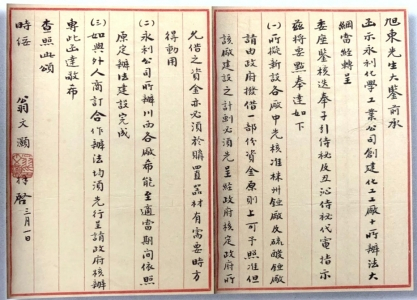 旭東先生大鑒前承
函示永利化學工業公司創建化工工廠十所辦法大
綱當經轉呈
委座鑒核迭奉子引侍秘及丑沁侍秘代電指示
茲將要點奉達如下
(一)所擬新設各廠中先核准株州錏廠及硫酸錏廠
請由政府撥借一部份資金原則上可予照准但
該廠建設之計劃必須先呈經政府核定政府所
允借之資金亦必須於購置器材有需要時方
得動用
(二)永利公司所辦川西各廠希能至適當期間依照
原定辦法建設完成
(三)如與外人商訂合作辦法均須先行呈請政府核辦
專此函達敬希
查照此頌
時綏
翁文灝 啓 三月一日